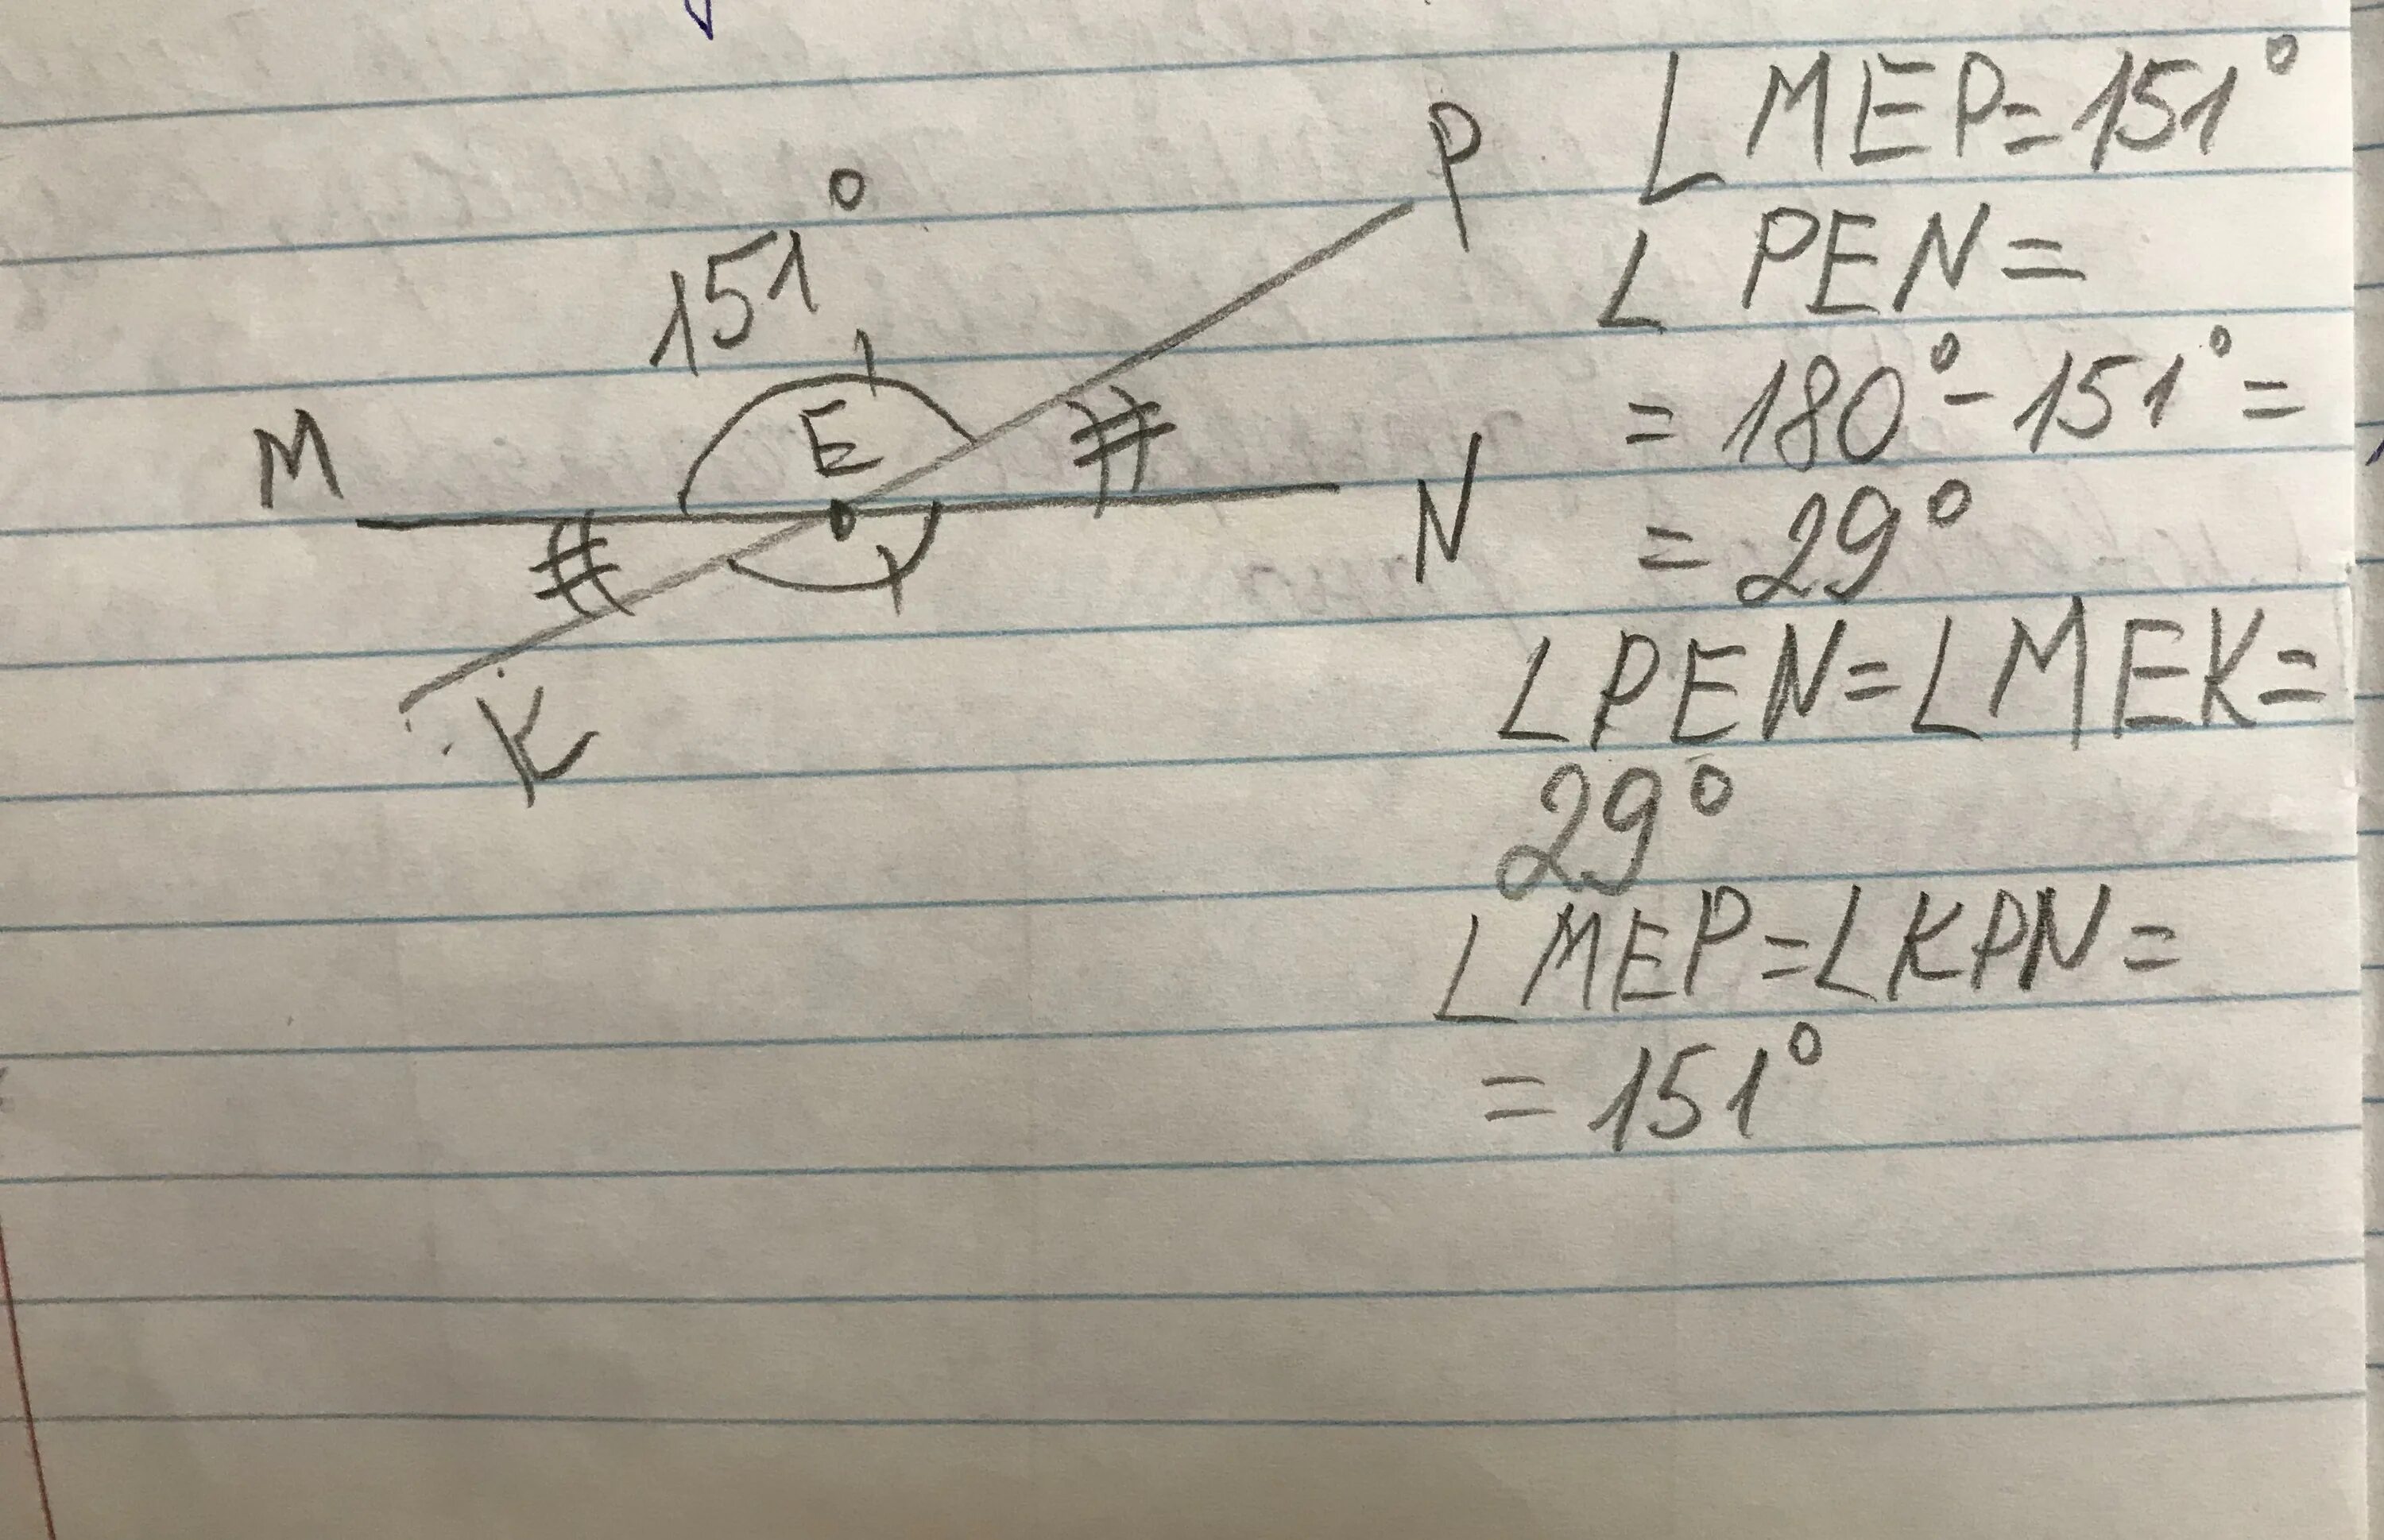 151°
M
E
P
N
K
∠MEP=151°
∠PEN=
= 180° - 151° =
= 29°
∠PEN=∠MEK=
29°
∠MEP=∠KPN=
= 151°